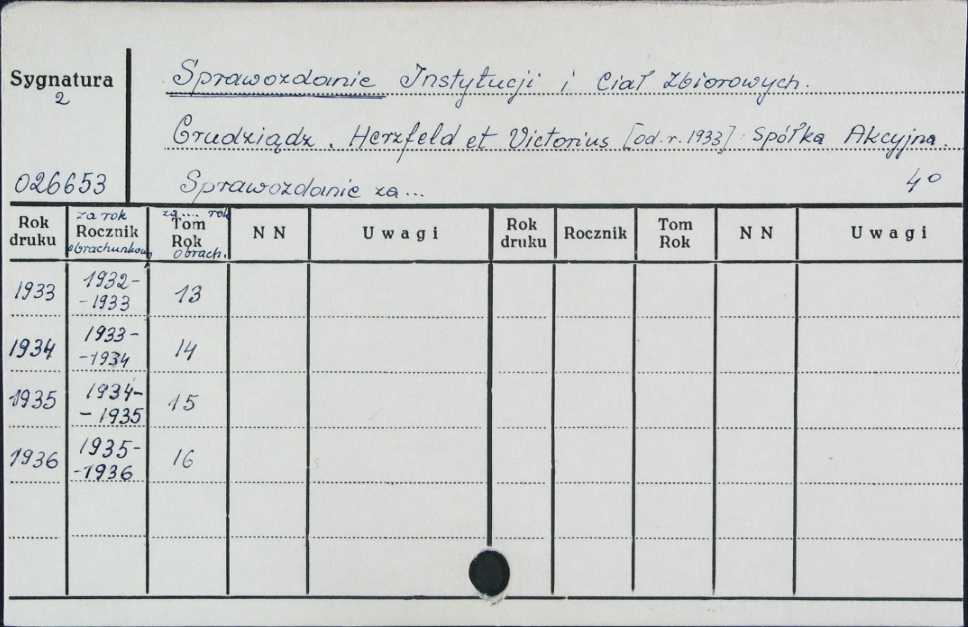 Sygnatura
2
026653
Sprawozdanie Instytucji i Ciał Zbiorowych.
Grudziądz. Herzfeld et Victorius [od. r. 1933]: Spółka Akcyjna.
Sprawozdanie za... 4°
Rok druku
za rok Rocznik obrachunkowy
za ... rok Tom Rok obrach.
N N
Uwagi
Rok druku
Rocznik
Tom Rok
N N
Uwagi
1933 1932-
-1933 13
1934 1933-
-1934 14
1935 1934-
-1935 15
1936 1935-
-1936 16